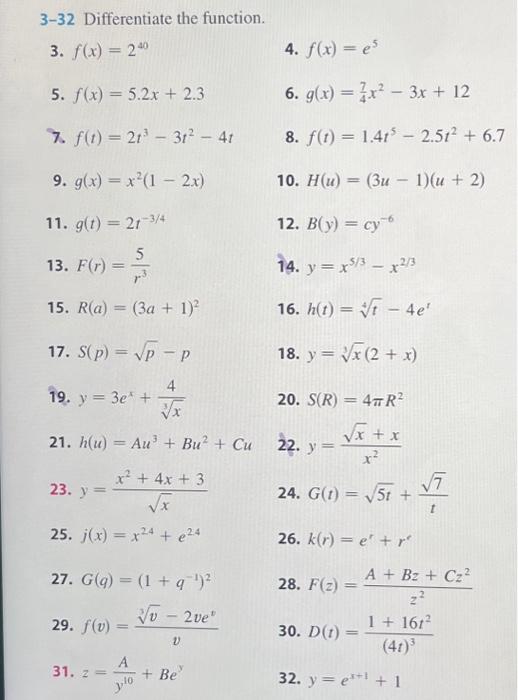 3–32 Differentiate the function.
3. f(x) = 2⁴⁰
4. f(x) = e⁵
5. f(x) = 5.2x + 2.3
6. g(x) = 7/4 x² − 3x + 12
7. f(t) = 2t³ − 3t² − 4t
8. f(t) = 1.4t⁵ − 2.5t² + 6.7
9. g(x) = x²(1 − 2x)
10. H(u) = (3u − 1)(u + 2)
11. g(t) = 2t^(−3/4)
12. B(y) = cy⁻⁶
13. F(r) = 5/r³
14. y = x^(5/3) − x^(2/3)
15. R(a) = (3a + 1)²
16. h(t) = ∜t − 4eᵗ
17. S(p) = √p − p
18. y = ∛x (2 + x)
19. y = 3eˣ + 4/∛x
20. S(R) = 4πR²
21. h(u) = Au³ + Bu² + Cu
22. y = (√x + x)/x²
23. y = (x² + 4x + 3)/√x
24. G(t) = √(5t) + √7/t
25. j(x) = x^2.4 + e^2.4
26. k(r) = eʳ + rᵉ
27. G(q) = (1 + q⁻¹)²
28. F(z) = (A + Bz + Cz²)/z²
29. f(v) = (∛v − 2veᵛ)/v
30. D(t) = (1 + 16t²)/(4t)³
31. z = A/y¹⁰ + Beʸ
32. y = e^(x+1) + 1